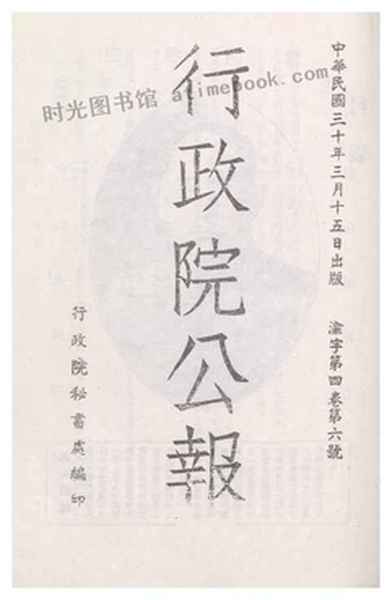 中華民國三十年三月十五日出版　渝字第四卷第六號
行政院公報
行政院秘書處編印
时光图书馆 atimebook.com